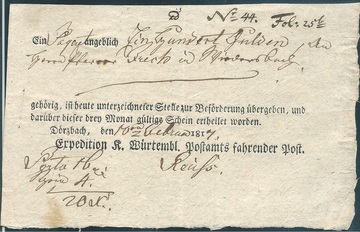 No. 44. Fol. 25
Ein Paquet angeblich Ein Hundert Gulden An
Herrn Pfarrer in
gehörig, ist heute unterzeichneter Stelle zur Beförderung übergeben, und
darüber dieser drey Monat gültige Schein ertheilet worden.
Dörzbach, den 10
Expedition K. Würtembl. Postamts fahrender Post.
Porto 16
Schein 4. Reuß.
20 x.